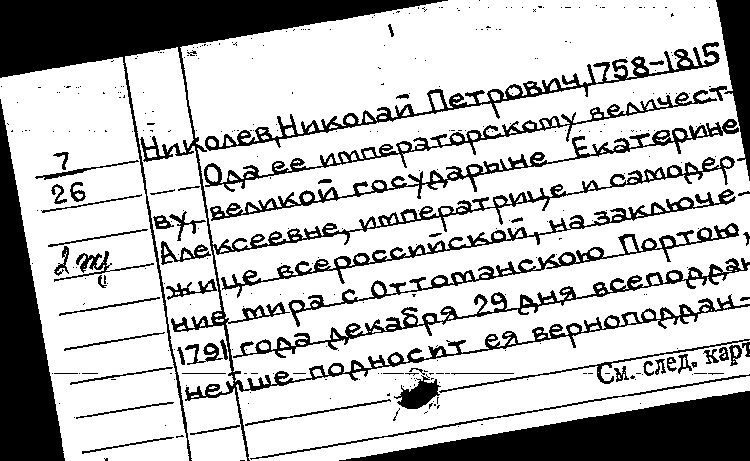 Николев, Николай Петрович, 1758-1815
7
26
Ода ее императорскому величест-
ву, великой государыне Екатерине
Алексеевне, императрице и самодер-
2
жице всероссийской, на заключе-
ние мира с Оттоманскою Портою,
1791 года декабря 29 дня всеподдан
нейше подносит ея верноподдан-
См. след. карт